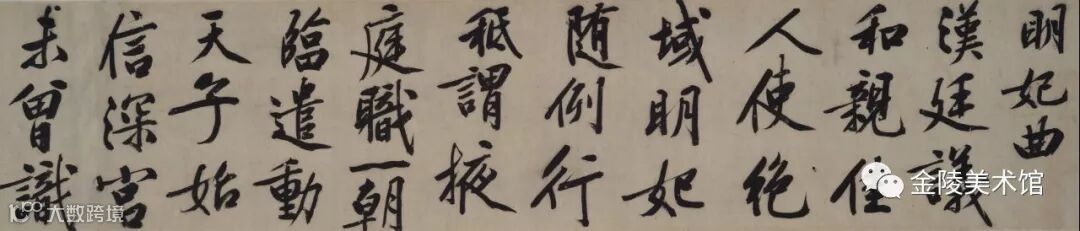 明妃曲
漢廷議
和親佳
人使絶
域明妃
随例行
秪謂掖
庭職一朝
臨遣動
天子始
信深宮
未曾識
金陵美术馆
大数跨境